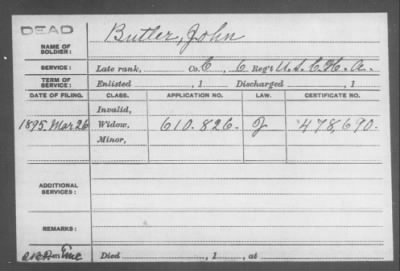 DEAD
NAME OF SOLDIER: Butler, John
SERVICE: Late rank, Co. E, 6 Reg't U.S.C.H.A.
TERM OF SERVICE: Enlisted , 1 Discharged , 1
DATE OF FILING. CLASS. APPLICATION NO. LAW. CERTIFICATE NO.
Invalid,
1895. Mar 26 Widow, 610.826. J 478,690.
Minor,
ADDITIONAL SERVICES:
REMARKS:
Died , 1 , at